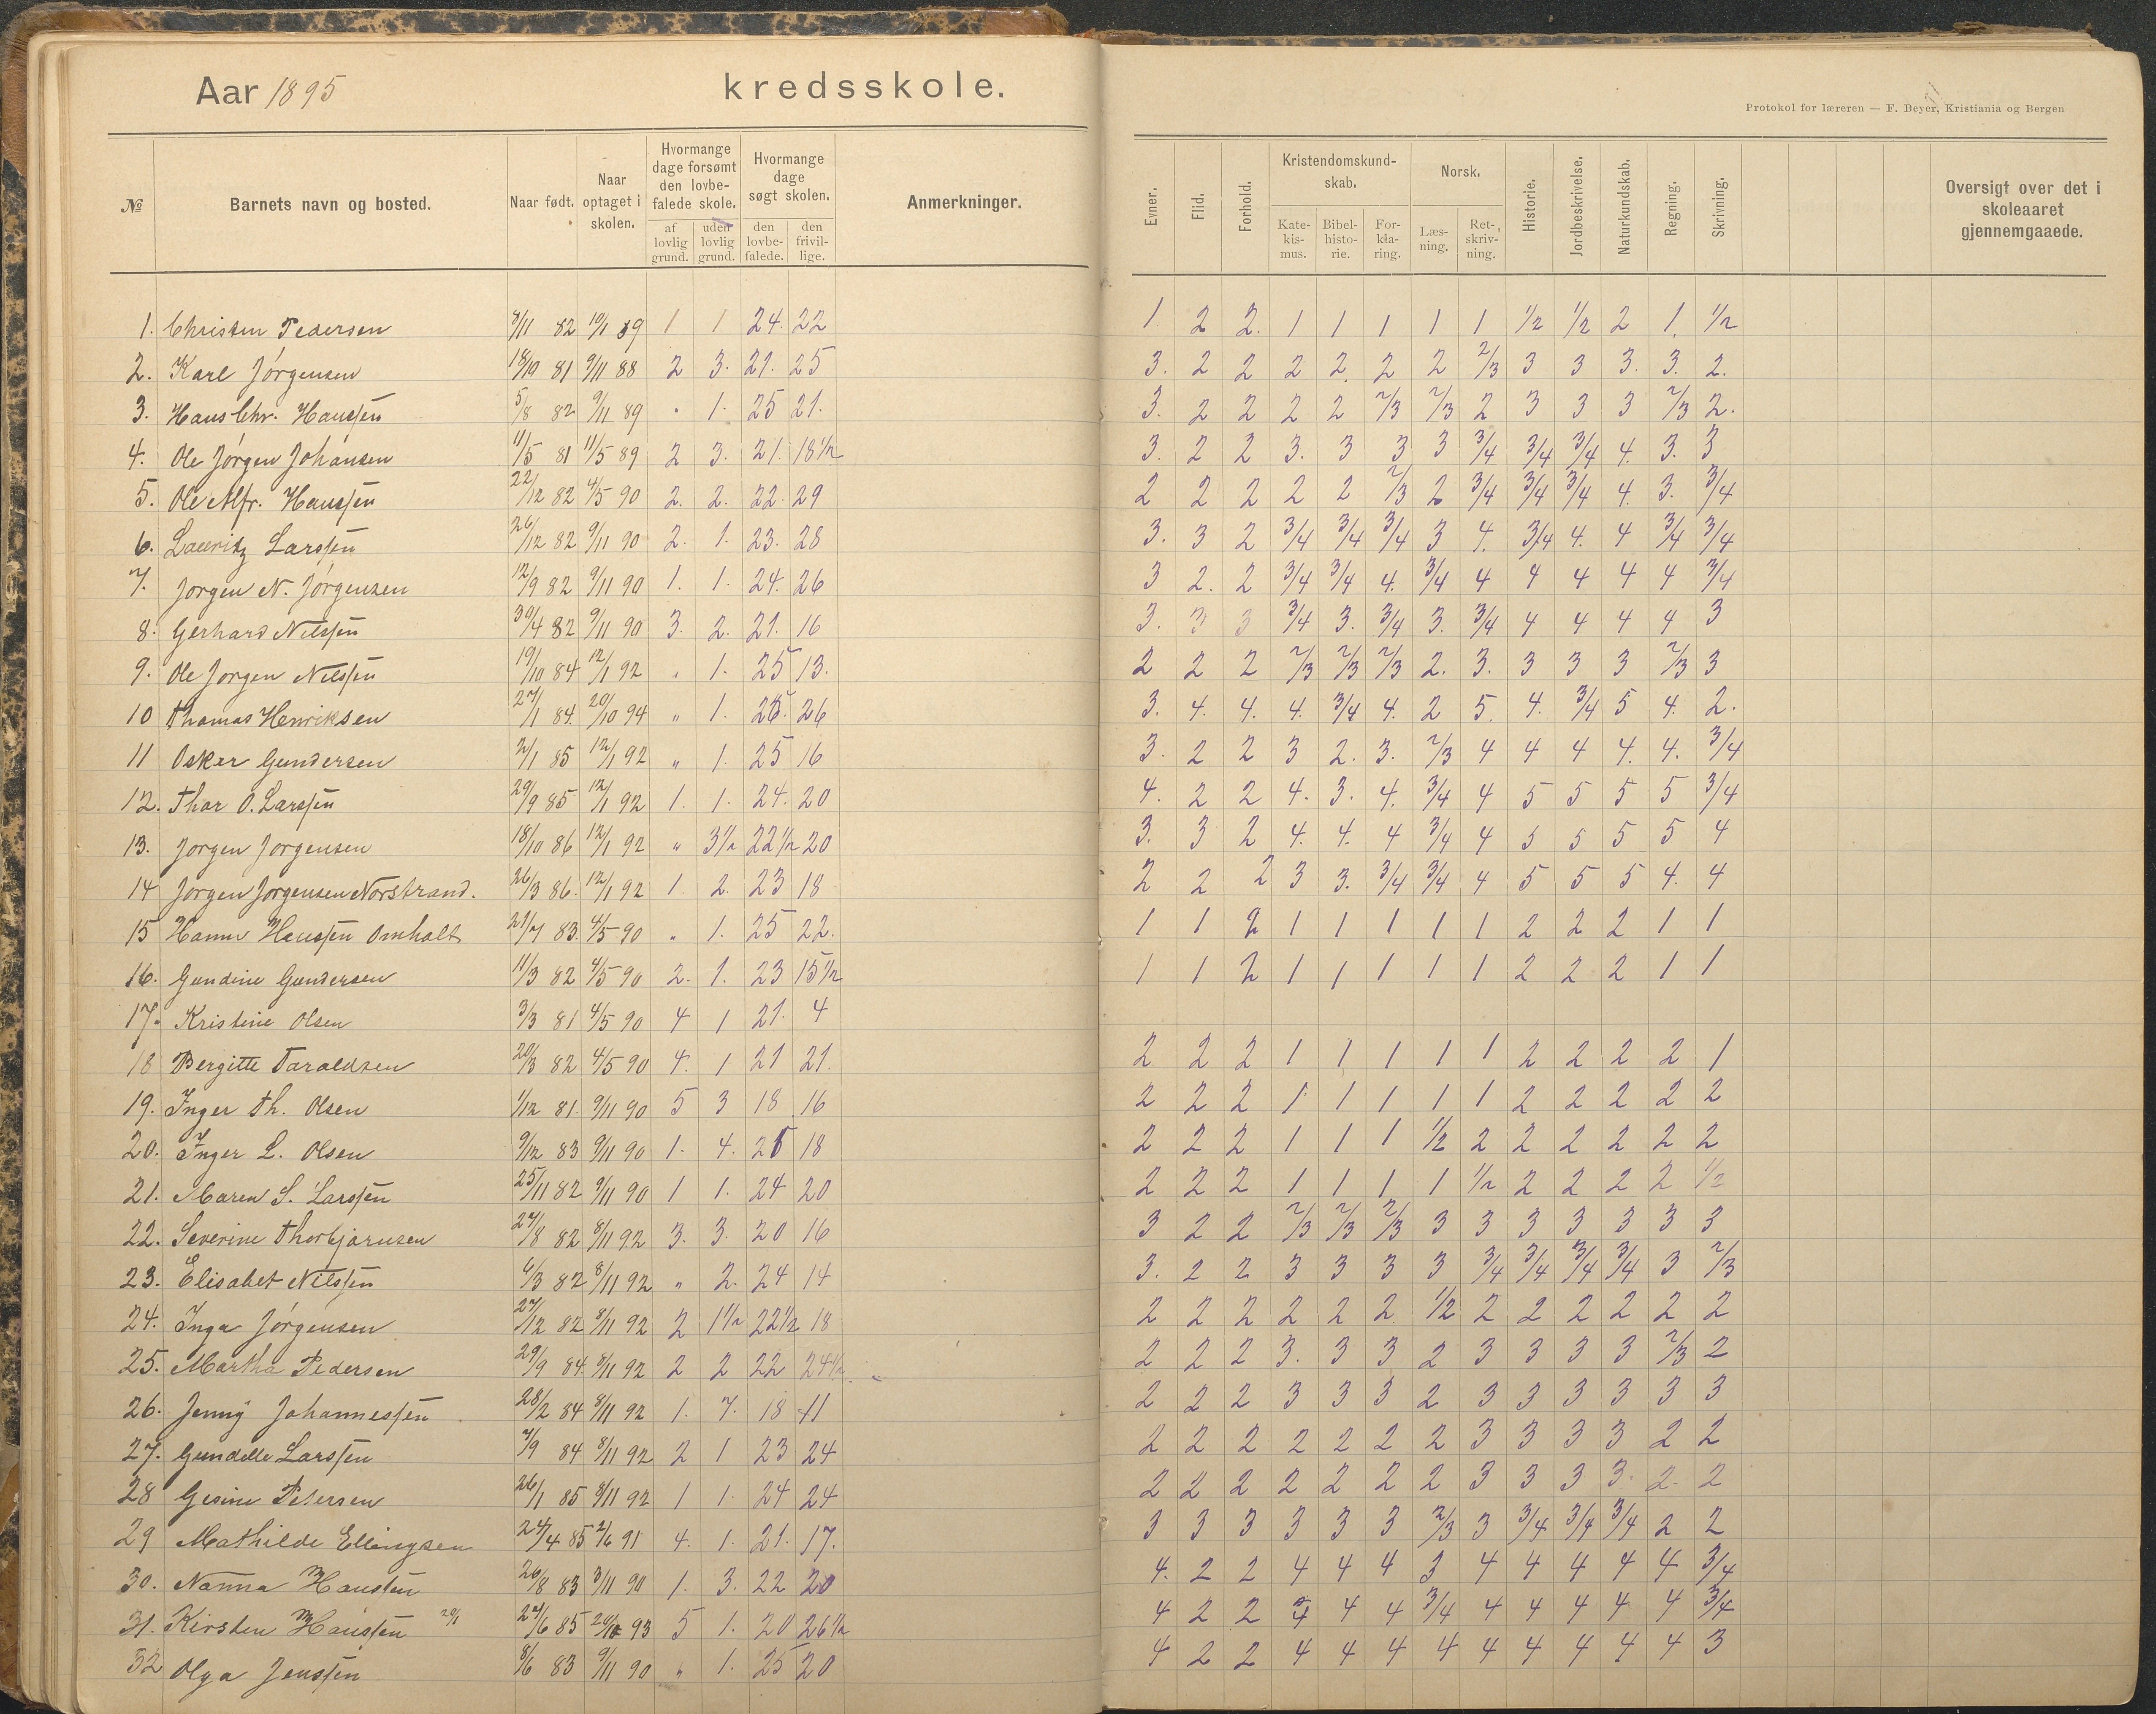 Aar 1895 kredsskole.
Protokol for læreren — F. Beyer, Kristiania og Bergen
№ Barnets navn og bosted. Naar født. Naar optaget i skolen. Hvormange dage forsømt den lovbefalede skole. af lovlig grund. uden lovlig grund. Hvormange dage søgt skolen. den lovbefalede. den frivillige. Anmerkninger. Evner. Flid. Forhold. Kristendomskundskab. Katekismus. Bibelhistorie. Forklaring. Norsk. Læsning. Retskrivning. Historie. Jordbeskrivelse. Naturkundskab. Regning. Skrivning. Oversigt over det i skoleaaret gjennemgaaede.
1. Christen Pedersen 8/11 82 10/1 89 1 1 24. 22 1 2 2. 1 1 1 1 1 1/2 1/2 2 1. 1/2
2. Karl Jörgensen 18/10 81 9/11 88 2 3. 21. 25 3. 2 2 2 2. 2 2 2/3 3 3 3. 3. 2.
3. Hans Chr. Hanssen 5/8 82 9/11 89 " 1. 25 21. 3. 2 2 2 2 2/3 2/3 2 3 3 3 2/3 2.
4. Ole Jörgen Johansen 11/5 81 11/5 89 2 3. 21. 18 1/2 3. 2 2 3. 3 3 3 3/4 3/4 3/4 4. 3. 3
5. Ole Alfr. Hanssen 22/12 82 4/5 90 2. 2. 22. 29 2 2 2 2 2 2/3 2 3/4 3/4 3/4 4. 3. 3/4
6. Lauritz Larssen 26/12 82 9/11 90 2. 1. 23. 28 3. 3 2 3/4 3/4 3/4 3 4. 3/4 4. 4 3/4 3/4
7. Jorgen N. Jörgensen 12/9 82 9/11 90 1. 1. 24. 26 3 2. 2 3/4 3/4 4. 3/4 4 4 4 4 4 3/4
8. Gerhard Nilssen 30/4 82 9/11 90 3. 2. 21. 16 3. 3 3 3/4 3. 3/4 3. 3/4 4 4 4 4 3
9. Ole Jorgen Nilssen 19/10 84 12/1 92 " 1. 25 13. 2 2 2 2/3 2/3 2/3 2. 3. 3 3 3 2/3 3
10 Thomas Henriksen 27/1 84. 20/10 94 " 1. 25. 26 3. 4. 4. 4. 3/4 4. 2 5. 4. 3/4 5 4. 2.
11 Osker Gundersen 2/1 85 12/1 92 " 1. 25 16 3. 2 2 3 2. 3. 2/3 4 4 4 4. 4. 3/4
12. Thor O. Larssen 29/9 85 12/1 92 1. 1. 24. 20 4. 2 2 4. 3. 4. 3/4 4 5 5 5 5 3/4
13. Jorgen Jorgensen 18/10 86 12/1 92 " 3 1/2 22 1/2 20 3. 3 2 4. 4. 4 3/4 4 5 5 5 5 4
14 Jorgen Jorgensen Norstrand. 26/3 86. 12/1 92 1. 2. 23 18 2 2 2 3 3. 3/4 3/4 4 5 5 5 4. 4
15 Hanne Hanssen Omholt 21/7 83. 4/5 90 " 1. 25 22. 1 1 2 1 1 1 1 1 2 2 2 1 1
16. Gundine Gundersen 11/3 82 4/5 90 2. 1. 23 15 1/2 1 1 2 1 1 1 1 1 2 2 2 1 1
17. Kristine Olsen 3/3 81 4/5 90 4 1 21. 4
18 Bergitte Taraldsen 20/3 82 4/5 90 4. 1 21 21. 2 2 2 1 1 1 1 1 2 2 2 2 1
19. Inger Th. Olsen 1/12 81. 9/11 90 5 3 18 16 2 2 2 1 1 1 1 1 2 2 2 2 2
20. Inger L. Olsen 9/12 83 9/11 90 1. 4. 21 18 2 2 2 1 1 1 1/2 2 2 2 2 2 2
21. Maren S. Larssen 25/11 82 9/11 90 1 1. 24 20 2 2 2 1 1 1 1 1/2 2 2 2 2 1/2
22. Severine Thorbjörnsen 27/8 82 8/11 92 3. 3. 20 16 3 2 2 2/3 2/3 2/3 3 3 3 3 3 3 3
23. Elisabet Nilssen 6/3 82 8/11 92 " 2. 24 14 3. 2 2 3 3 3 3 3/4 3/4 3/4 3/4 3 2/3
24. Inga Jörgensen 27/12 82 8/11 92 2 1 1/2 22 1/2 18 2 2 2 2 2 2 1/2 2 2 2 2 2 2
25. Martha Pedersen 29/9 84. 8/11 92 2 2 22 24 1/2 2 2 2 3. 3 3 2 3 3 3 3 2/3 2
26. Jenny Johannessen 28/2 84 8/11 92 1. 7. 18 11 2 2 2 3 3 3 2 3 3 3 3 3 3
27. Gundelle Larssen 7/9 84 8/11 92 2 1 23 24 2 2 2 2 2 2 2 3 3 3 3 2 2
28 Gesine Petersen 26/1 85 8/11 92 1 1. 24 24 2 2 2 2 2 2 2 3 3 3 3. 2. 2
29 Mathilde Ellingsen 24/4 85 2/6 91 4. 1. 21. 17. 3 3 3 3 3 3 2/3 3 3/4 3/4 3/4 2 2
30. Nanna Hanssen 26/8 83 3/11 90 1. 3. 22 20 4. 2 2 4 4 4 3 4 4 4 4 4 3/4
31. Kirsten Hanssen 20/1 27/6 85 93 5 1. 20 26 1/2 4 2 2 4 4 4 3/4 4 4 4 4 4 3/4
32 Olga Jenssen 8/6 83 9/11 90 " 1. 25 20 4 2 2 4 4 4 4 4 4 4 4 4 3